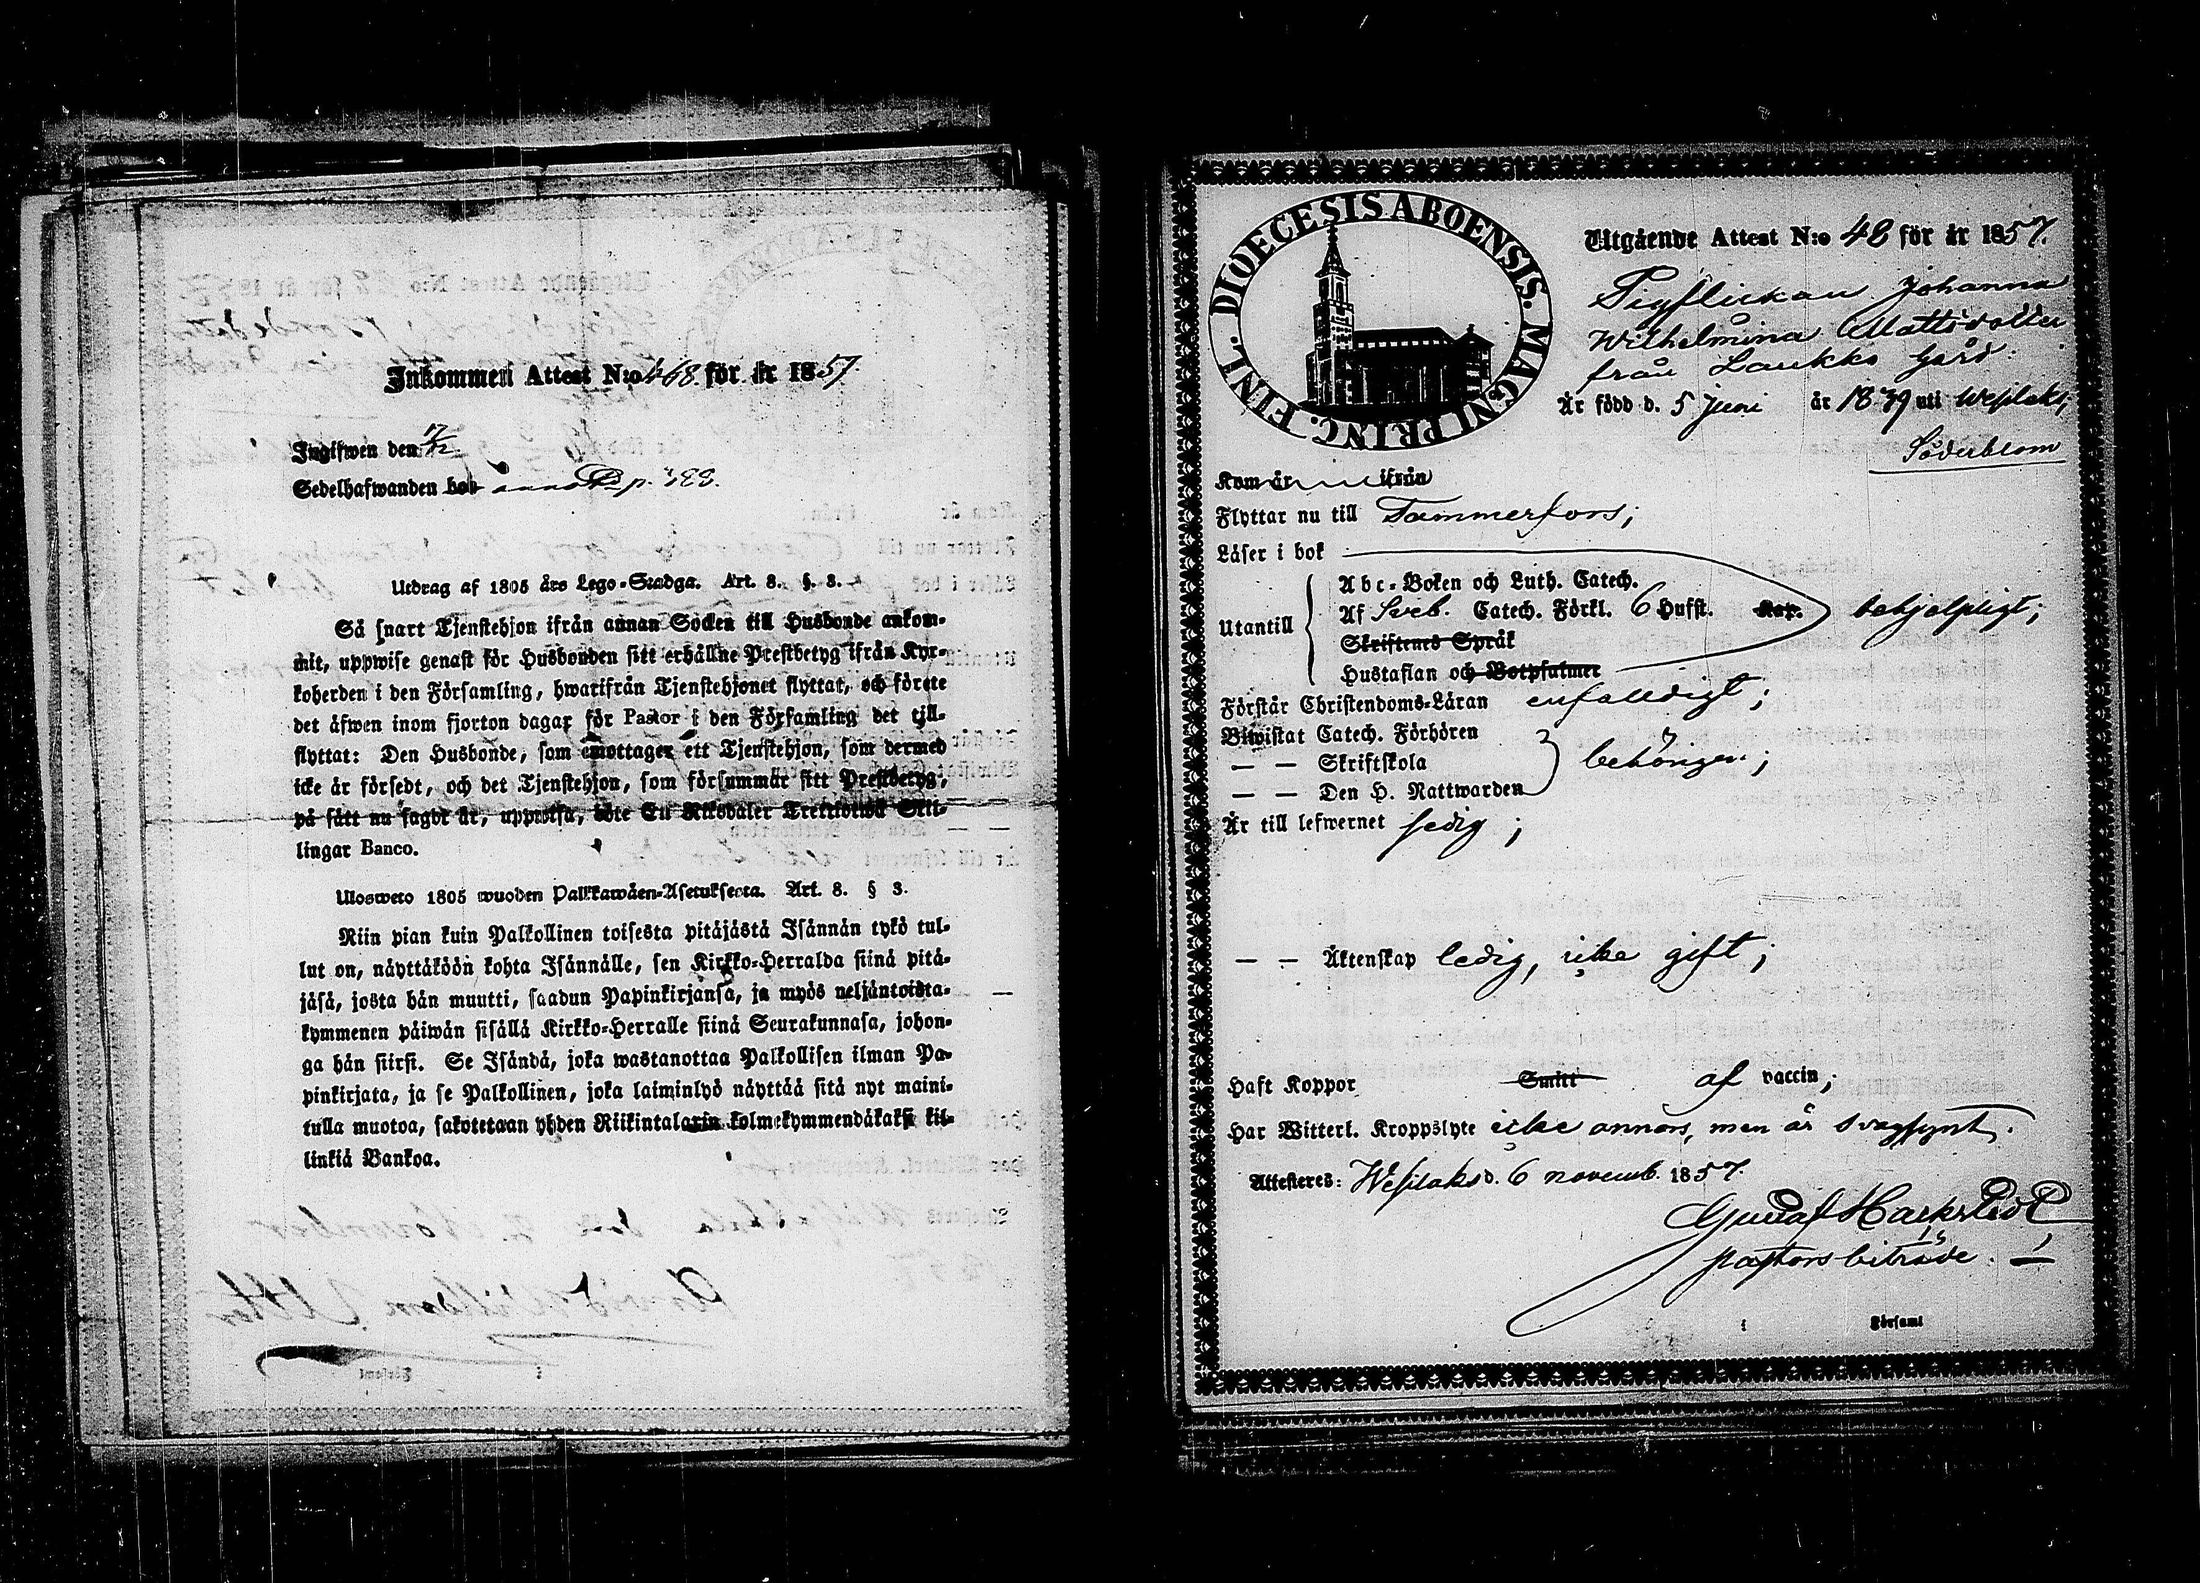 Inkommen Attest N:o 468. för år 1857.
Ingifwen den 17/12.
Sedelhafwanden hos p. 388.
Utdrag af 1805 års Lego-Stadga. Art. 8. §. 3.
Så snart Tjenstehjon ifrån annan Socken till Husbonde ankom-
mit, uppwise genast för Husbonden sitt erhållne Prestbetyg ifrån Kyr-
koherden i den Församling, hwarifrån Tjenstehjonet flyttat, och förete
det äfwen inom fjorton dagar för Pastor i den Församling det till-
flyttat: Den Husbonde, som emottager ett Tjenstehjon, som dermed
icke är försedt, och det Tjenstehjon, som försummar sitt Prestbetyg,
på sätt nu sagdt är, uppwisa, böte En Riksdaler Trettiotwå Skil-
lingar Banco.
Ulosweto 1805 wuoden Palkkawäen-Asetuksesta. Art. 8. § 3.
Niin pian kuin Palkollinen toisesta pitäjästä Isännän tykö tul-
lut on, näyttäköön kohta Isännälle, sen Kirkko-Herralda siinä pitä-
jäsä, josta hän muutti, saadun Papinkirjansa, ja myös neljäntoista-
kymmenen päiwän sisällä Kirkko-Herralle siinä Seurakunnasa, johon-
ga hän siirsi. Se Isändä, joka wastanottaa Palkollisen ilman Pa-
pinkirjata, ja se Palkollinen, joka laiminlyö näyttää sitä nyt maini-
tulla muotoa, sakotetaan yhden Riikintalarin kolmekymmendäkaksi kil-
linkiä Bankoa.
DIOECESIS ABOENSIS. MAGNI PRINC. FINL.
Utgående Attest N:o 48 för år 1857.
Pigflickan Johanna
Wilhelmina Mattsdotter
från Laukko Gård.
Är född d. 5 Juni år 1839 uti Wesilaks,
Söderblom
Kom år ifrån
Flyttar nu till Tammerfors;
Läser i bok
Utantill
Abc-Boken och Luth. Catech.
Af Sveb. Catech. Förkl. 6 Hufst. Kap. behjelpligt;
Skriftenes Språk
Hustaflan och Botpsalmer
Förstår Christendoms-Läran enfaldigt;
Biwistat Catech. Förhören
— — Skriftskola behörigen;
— — Den H. Nattwarden
Är till lefwernet sedig;
— — Äktenskap ledig, icke gift;
Haft Koppor Smitt af vaccin;
Har Witterl. Kroppslyte icke annors, men är svagsynt.
Attesteres: Wesilaks d. 6 novemb. 1857.
Gustaf
pastorsbiträde.
i Församl